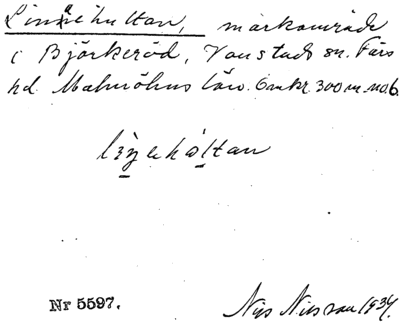 Linnehultan, markområde
i Björkeröd, Vanstads sn. Färs
hd. Malmöhus län. Omkr. 300 m. no b.
Nr 5597.
Nils Nilsson 1934.